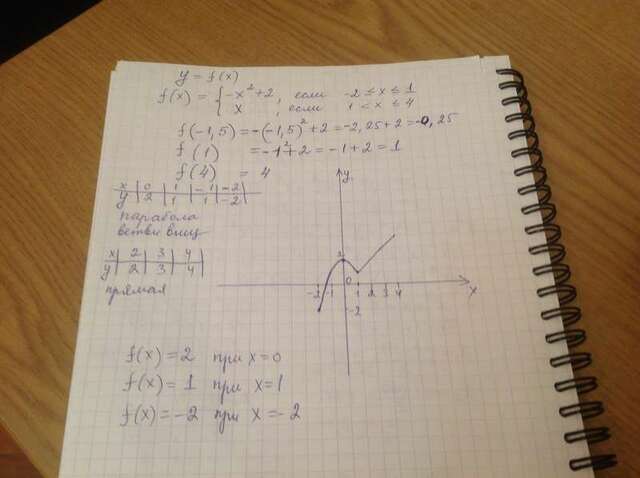 y = f(x)
f(x) = { -x² + 2, если -2 ≤ x ≤ 1
x, если 1 < x ≤ 4
f(-1,5) = -(-1,5)² + 2 = -2,25 + 2 = -0,25
f(1) = -1² + 2 = -1 + 2 = 1
f(4) = 4
x | 0 | 1 | -1 | -2 |
y | 2 | 1 | 1 | -2 |
парабола
ветви вниз
x | 2 | 3 | 4 |
y | 2 | 3 | 4 |
прямая
y
2
0
-2 -1 1 2 3 4
x
-2
f(x) = 2 при x = 0
f(x) = 1 при x = 1
f(x) = -2 при x = -2